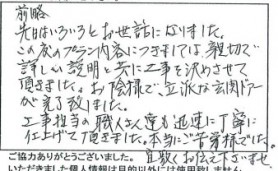 前略
先日はいろいろとお世話になりました。
この度のプラン内容につきましては親切で
詳しい説明と共に工事を決めさせて
頂きました。お陰様で、立派な玄関ドアー
が完了致しました。
工事担当の職人さん達も迅速に丁寧に
仕上げて頂きました。本当にご苦労様でした。
ご協力ありがとうございました。宜敷くお伝え下さいませ
いただきました個人情報は目的以外には使用致しません